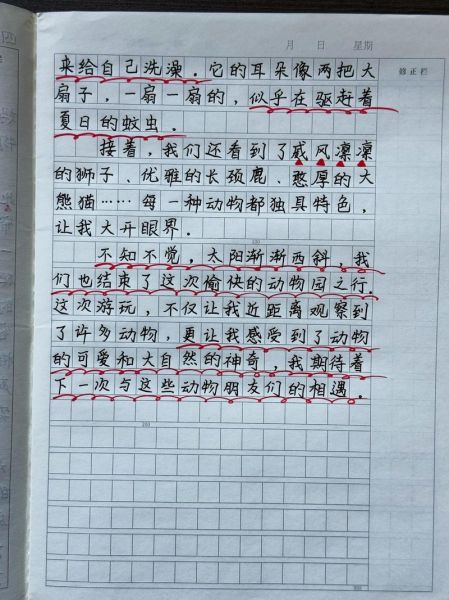 月 日 星期
修正栏
来给自己洗澡。它的耳朵像两把大
扇子，一扇一扇的，似乎在驱赶着
夏日的蚊虫。
接着，我们还看到了威风凛凛
的狮子、优雅的长颈鹿、憨厚的大
熊猫……每一种动物都独具特色，
让我大开眼界。
不知不觉，太阳渐渐西斜，我
们也结束了这次愉快的动物园之行。
这次游玩，不仅让我近距离观察到
了许多动物，更让我感受到了动物
的可爱和大自然的神奇，我期待着
下一次与这些动物朋友们的相遇。